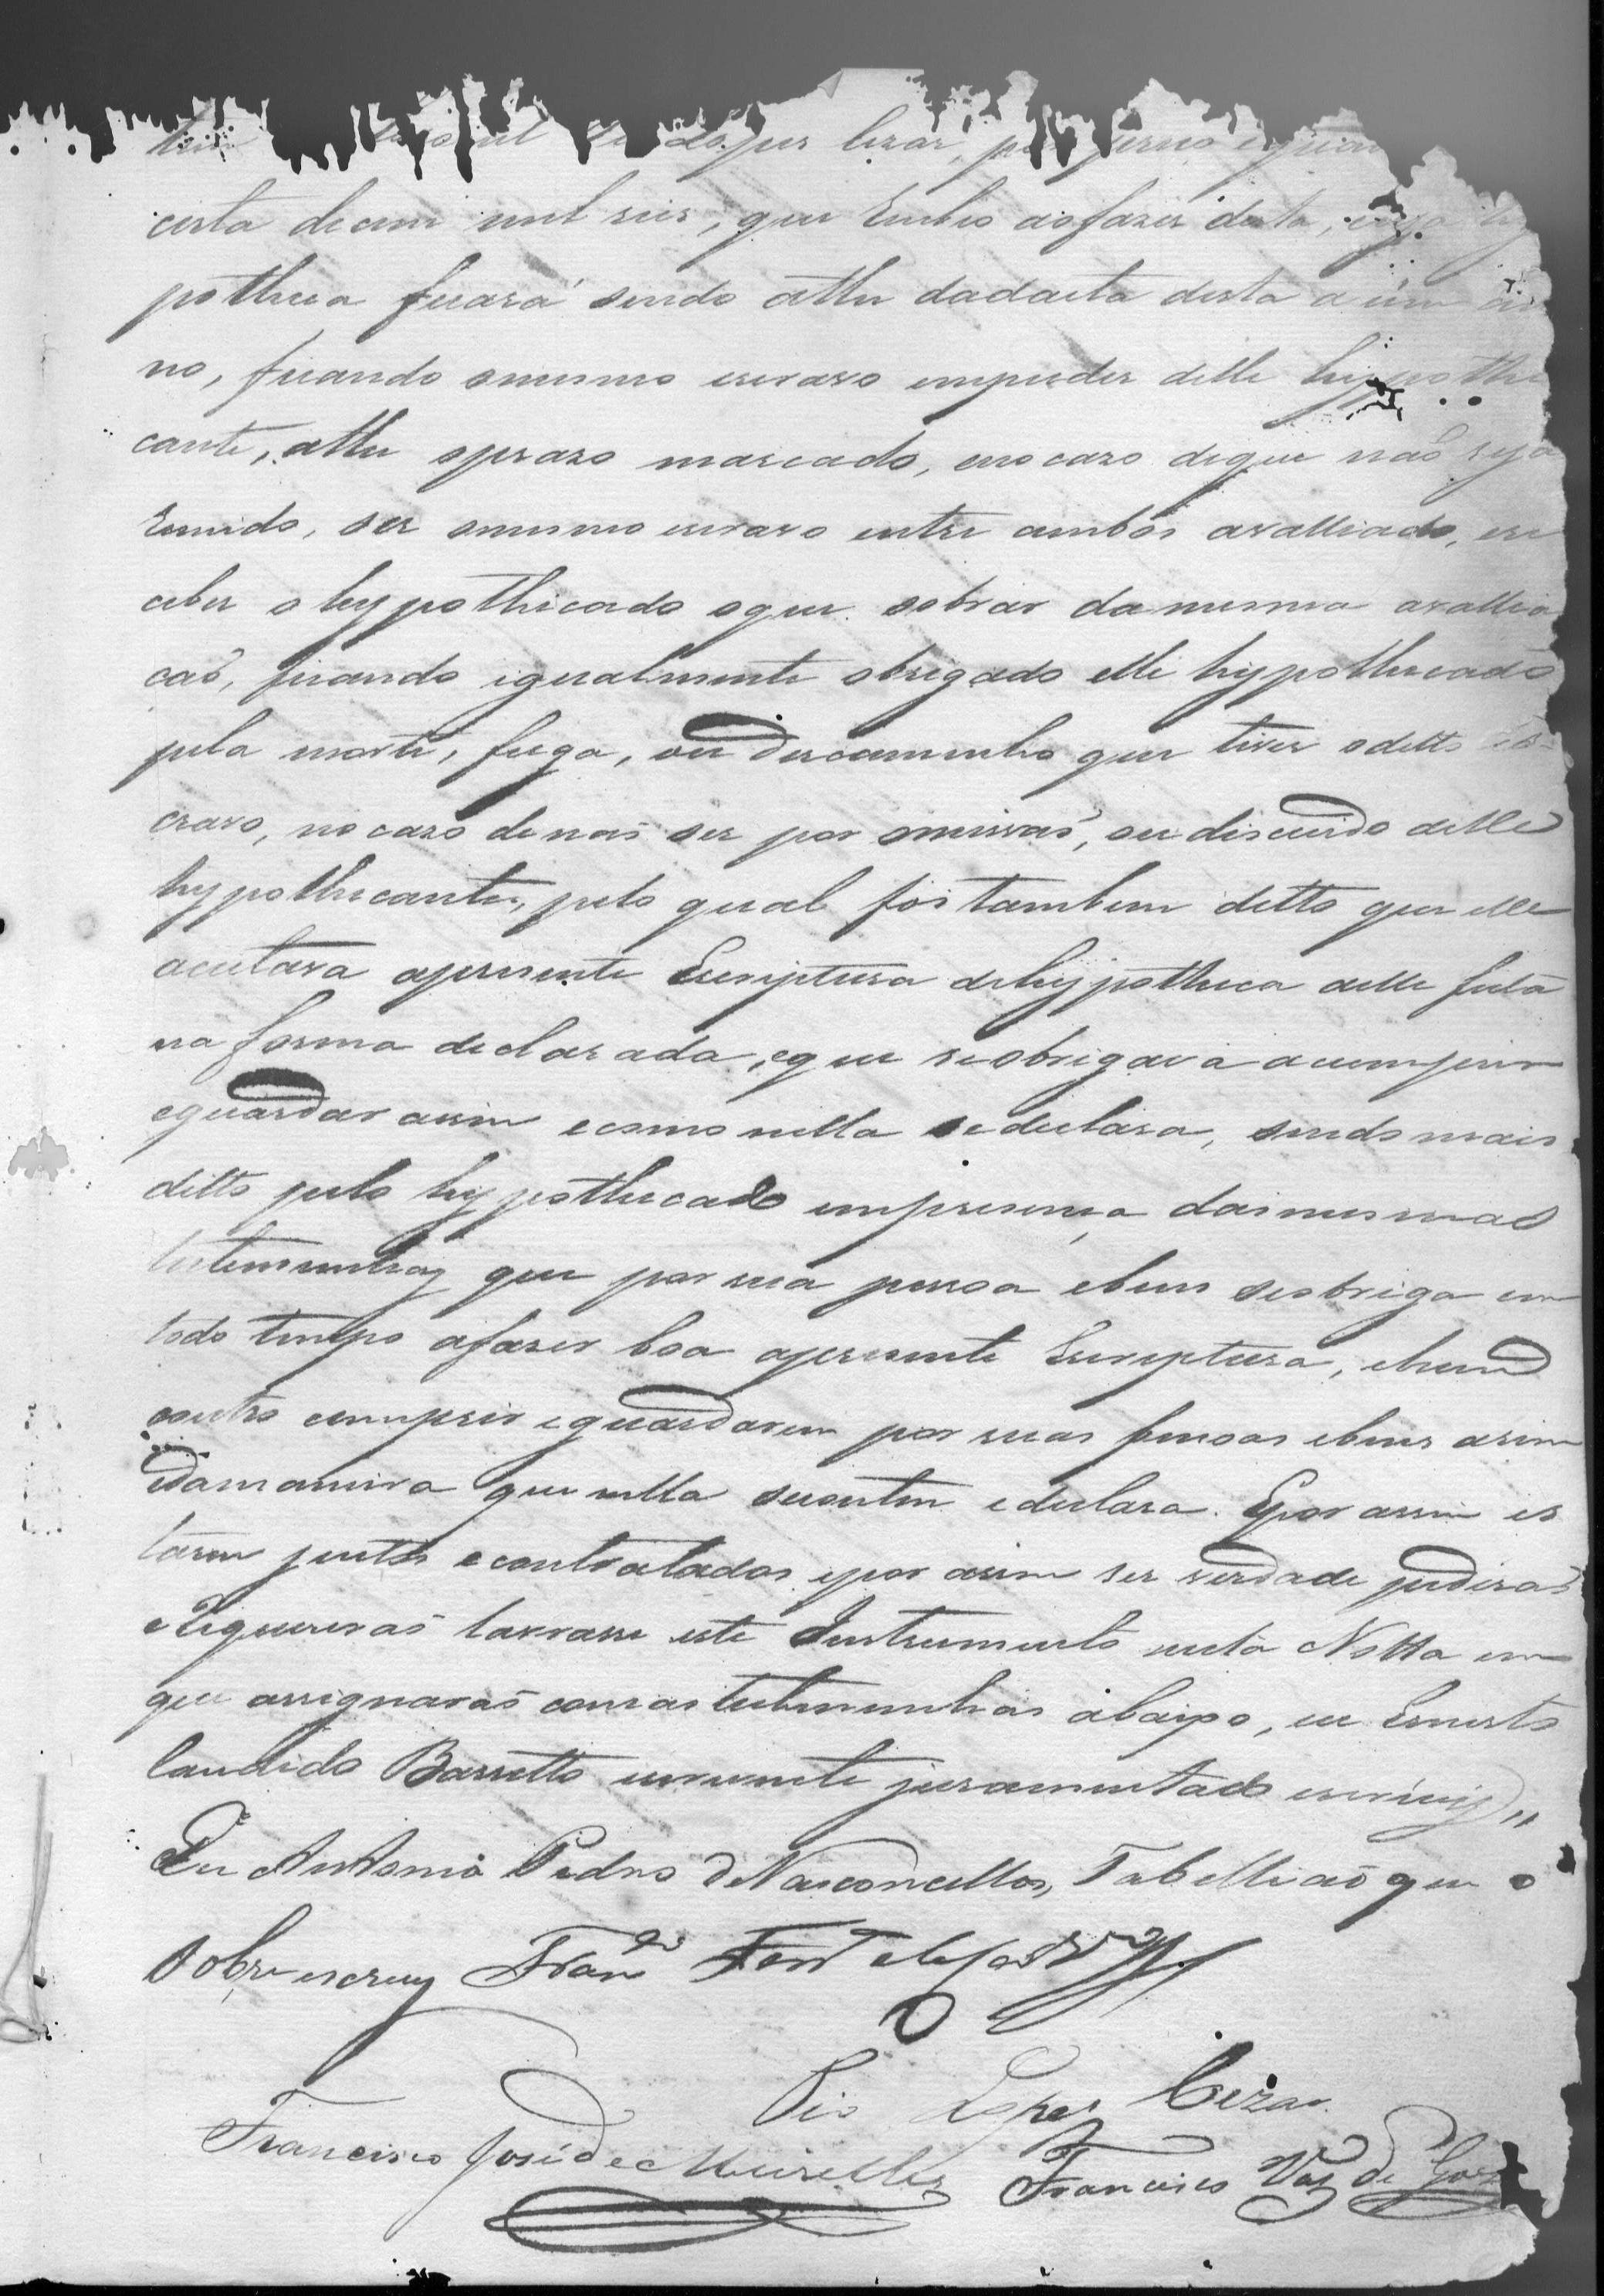 Lopes Cezar, 
certa de cem mil reis, que recebeo ao fazer desta, cuja hy
potheca ficará sendo athe da dacta desta a um an
no, ficando o mesmo escravo em poder delle hypothe
cante, athe o praso marcado, e no cazo de que não seja
remido, ser o mesmo escravo entre ambos avalliado, e re
ceber o hypothecado o que sobrar da mesma avallia
caõ, ficando igualmente obrigado elle hypothecado
pela morte, fuga, ou descaminho que tiver o ditto es
cravo, no cazo de naõ ser por omissaõ, ou discuido delle
hypothecante, pelo qual foi tambem ditto que elle
aceitava a presente Escriptura de hypotheca a elle feita
na forma declarada, e que se obrigava a cumprir
e guardar assim e como nella se declara, sendo mais
ditto pelo hypothecado em presença das mesmas
testemunhas que por sua pessoa e bens se obriga em
todo tempo a fazer boa a presente Escriptura, e hum e
outro cumprir e guardarem por suas pessoas e bens assim
e da maneira que nella se contem e declara. E por assim es
tarem justos e contratados e por assim ser verdade pediraõ
e requereraõ lavrasse este Instrumento nesta Notta em
que assignaraõ com as testemunhas abaixo, eu Ernesto
Candido Barretto escrevente juramentado escrevy
Eu Antonio Pedro de Vasconcellos, Tabelliaõ que o
sobre escrevy Fran.co
Pio Lopes Cezar
Francisco José de Meirelles Francisco Vaz de Goes